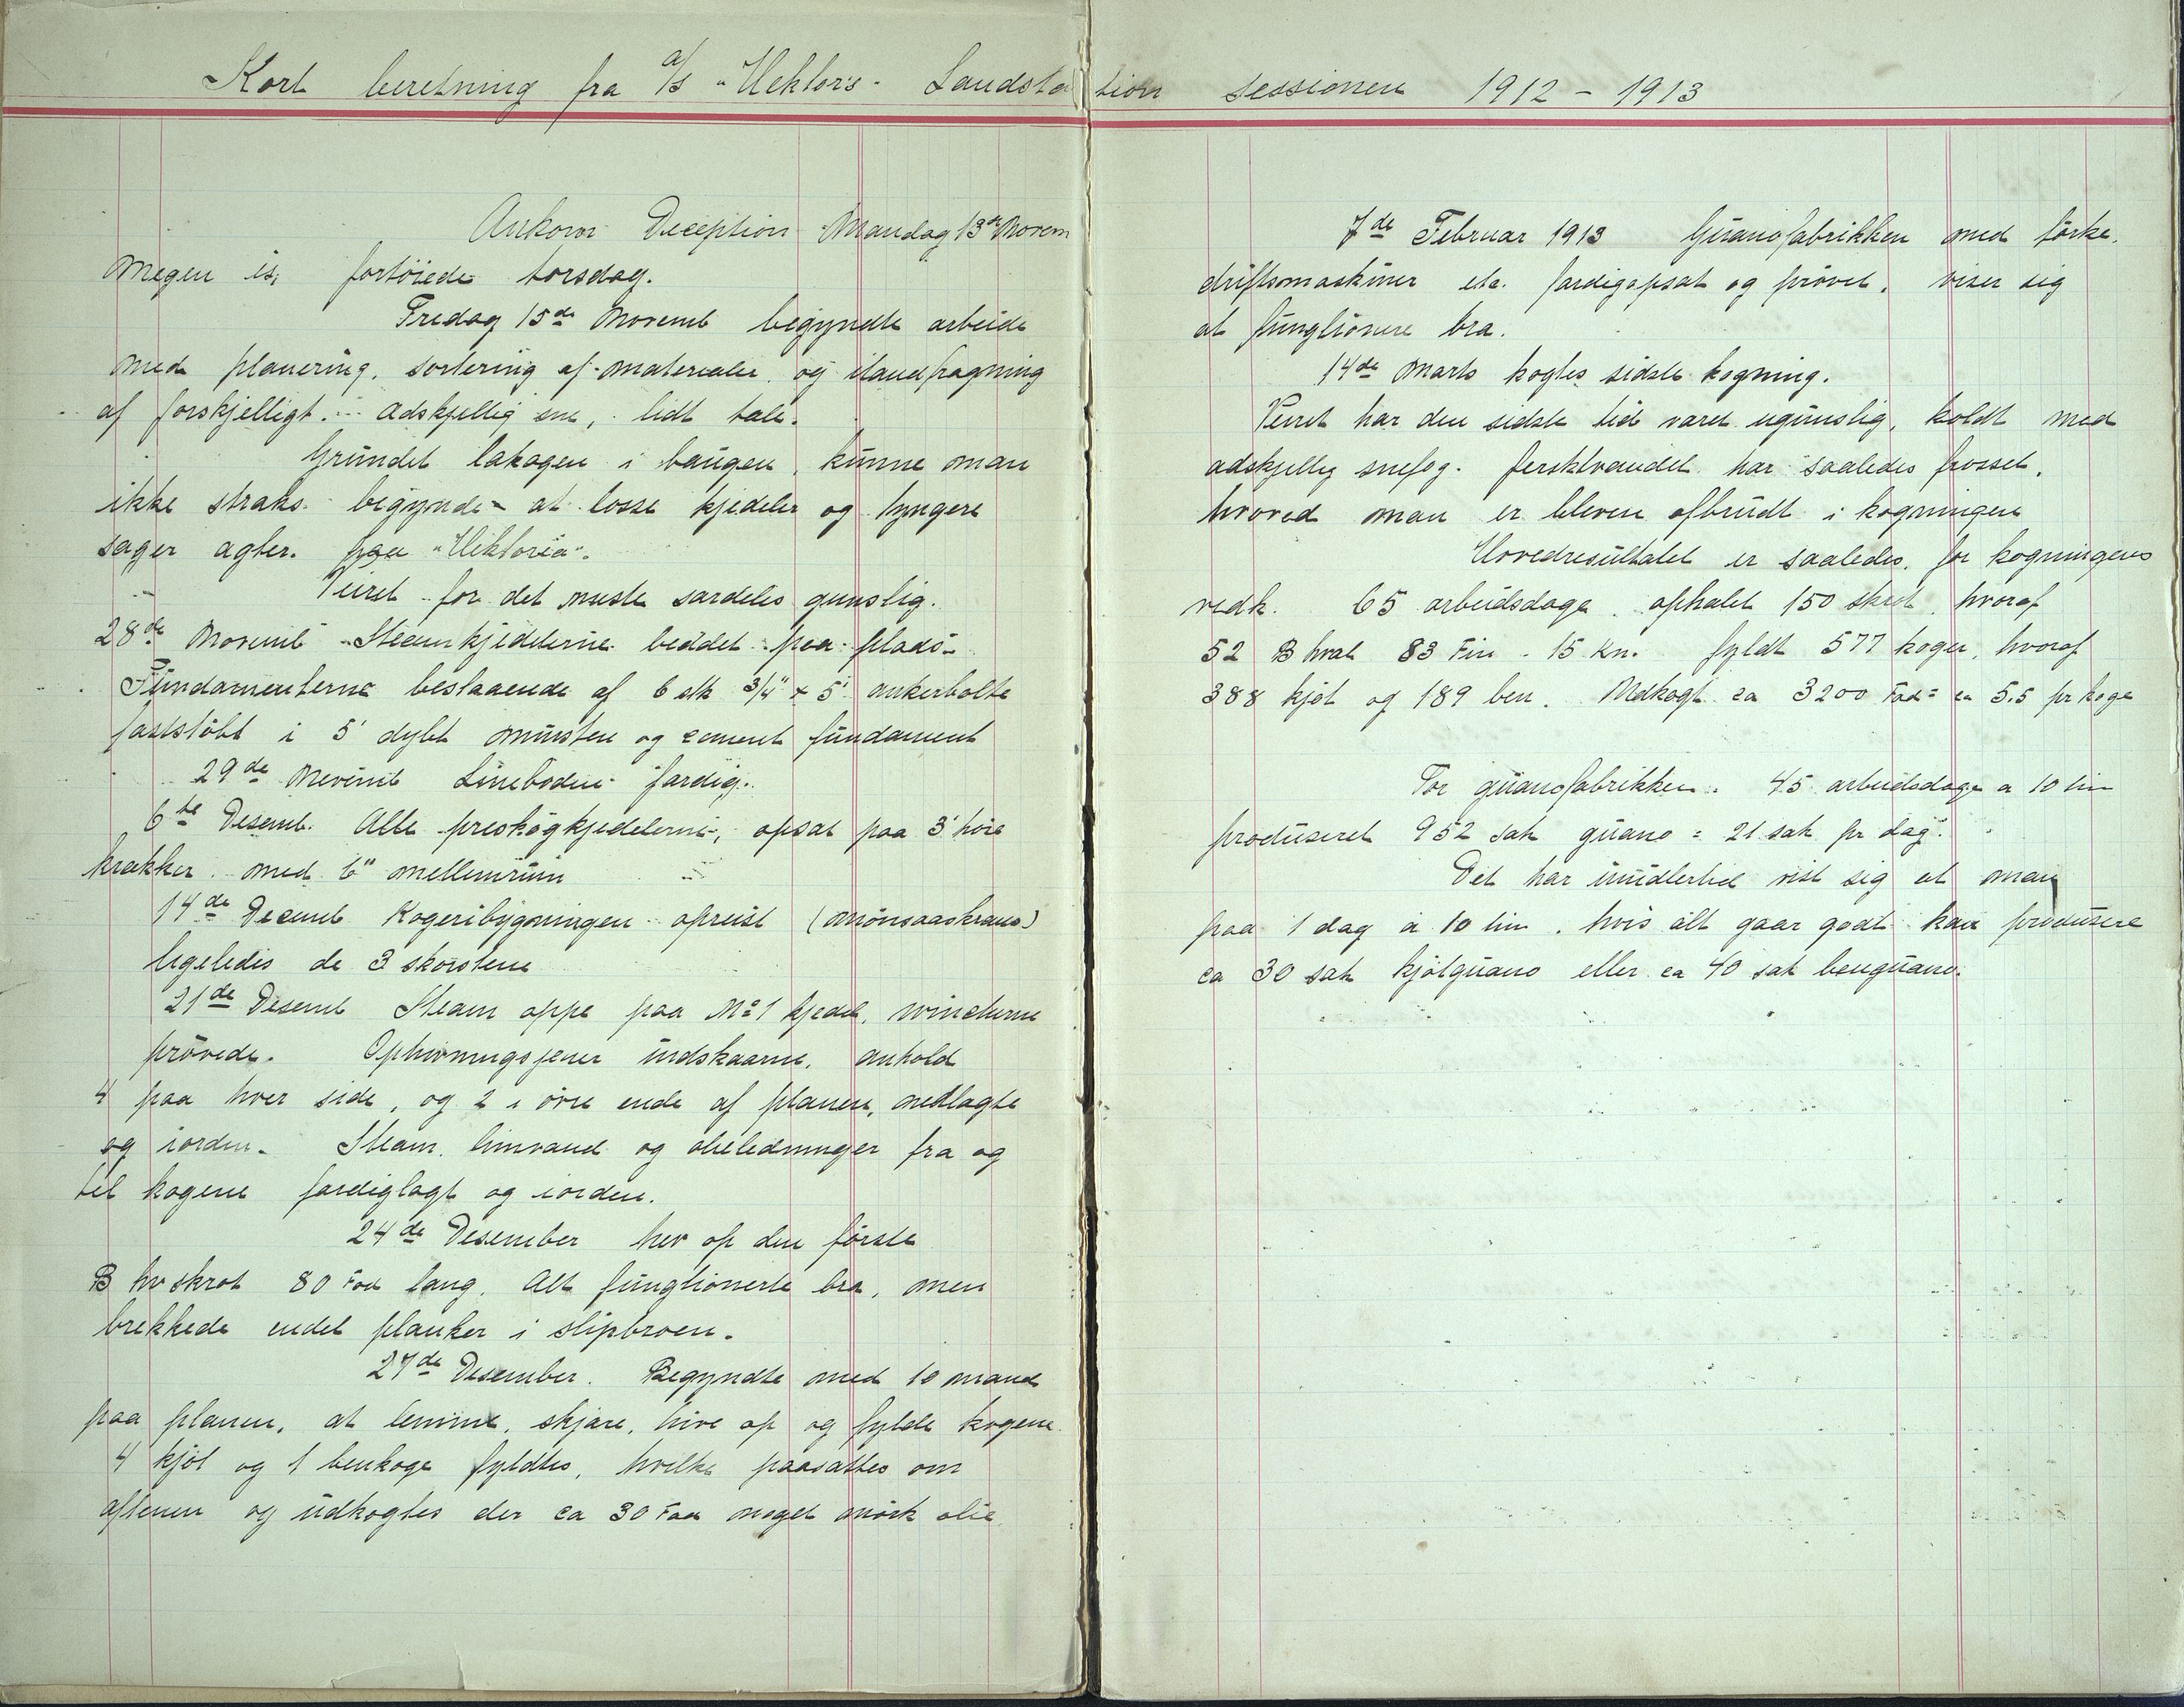 Kort beretning fra A/S "Hektors" Landstation sessionen 1912 - 1913
Ankom Deception Mandag 13de Novem
Megen is, fortöiede torsdag.
Fredag 15de Novemb begyndte arbeide
med planering, sortering af materialer og ilandfragning
af forskjelligt. Adskjellig sne, lidt tæle.
Grundet lakagen i baugen, kunne man
ikke straks begynde at losse kjedeler og tyngere
sager agter. paa "Hektoria".
Veiret for det meste særdeles gunslig.
28de Novemb Steamkjedelerne beddet paa plads
Fundamenterne bestaaende af 6 stk 3/4" x 5' ankerbolte
faststöbt i 5' dybt mursten og cement fundament
29de Novemb Lineboden færdig.
6te Desemb. Alle preskogkjedelerne, opsat paa 3' höie
krakker med 6" mellemrum
14de Desemb Kogeribygningen opreist (mönsaaskrans)
ligeledes de 3 skorstene
21de Desemb Steam oppe paa No 1 kjedel, wincherne
prövede. Ophivningsjener indskaarne, anhold
4 paa hver side, og 2 i övre ende af planen, nedlagte
og iorden. Steam, limvand og olieledninger fra og
til kogerne færdiglagt og iorden.
24de Desember hev op den förste
B hv skrot 80 Fod lang. Alt fungtionerte bra, men
brekkede endel planker i slipbroen.
27de Desember. Begyndte med 10 mand
paa planen, at lemme, skjære, hive op og fylde kogene
4 kjöt og 1 benkoge fyldtes, hvilke paasattes om
aftenen og udkogtes der ca 30 Fad meget mörk olie
7de Februar 1913 Guanofabrikken med törke,
driftsmaskiner etc. færdigopsat og prövet, viser sig
at fungtionere bra.
14de Marts kogtes sidste kogning.
Veiret har den sidste tid været ugunslig, koldt med
adskjellig snefog. Ferskvandet har saaledes frosset,
hvorved man er bleven afbrudt i kogningen
Hovedresultatet er saaledes, for kogningens
vedk. 65 arbeidsdage, ophalet 150 skrot, hvoraf
52 B hval 83 Fin - 15 Kn. fyldt 577 koger, hvoraf
388 kjöt og 189 ben. Udkogt ca 3200 Fad = ca 5.5 pr koge
For guanofabrikken. 45 arbeidsdage a 10 tim
produseret 952 sæk guano = 21 sæk pr dag.
Det har imidlertid vist sig at man
paa 1 dag a 10 tim, hvis alt gaar godt kan produsere
ca 30 sæk kjötguano eller ca 40 sæk benguano.